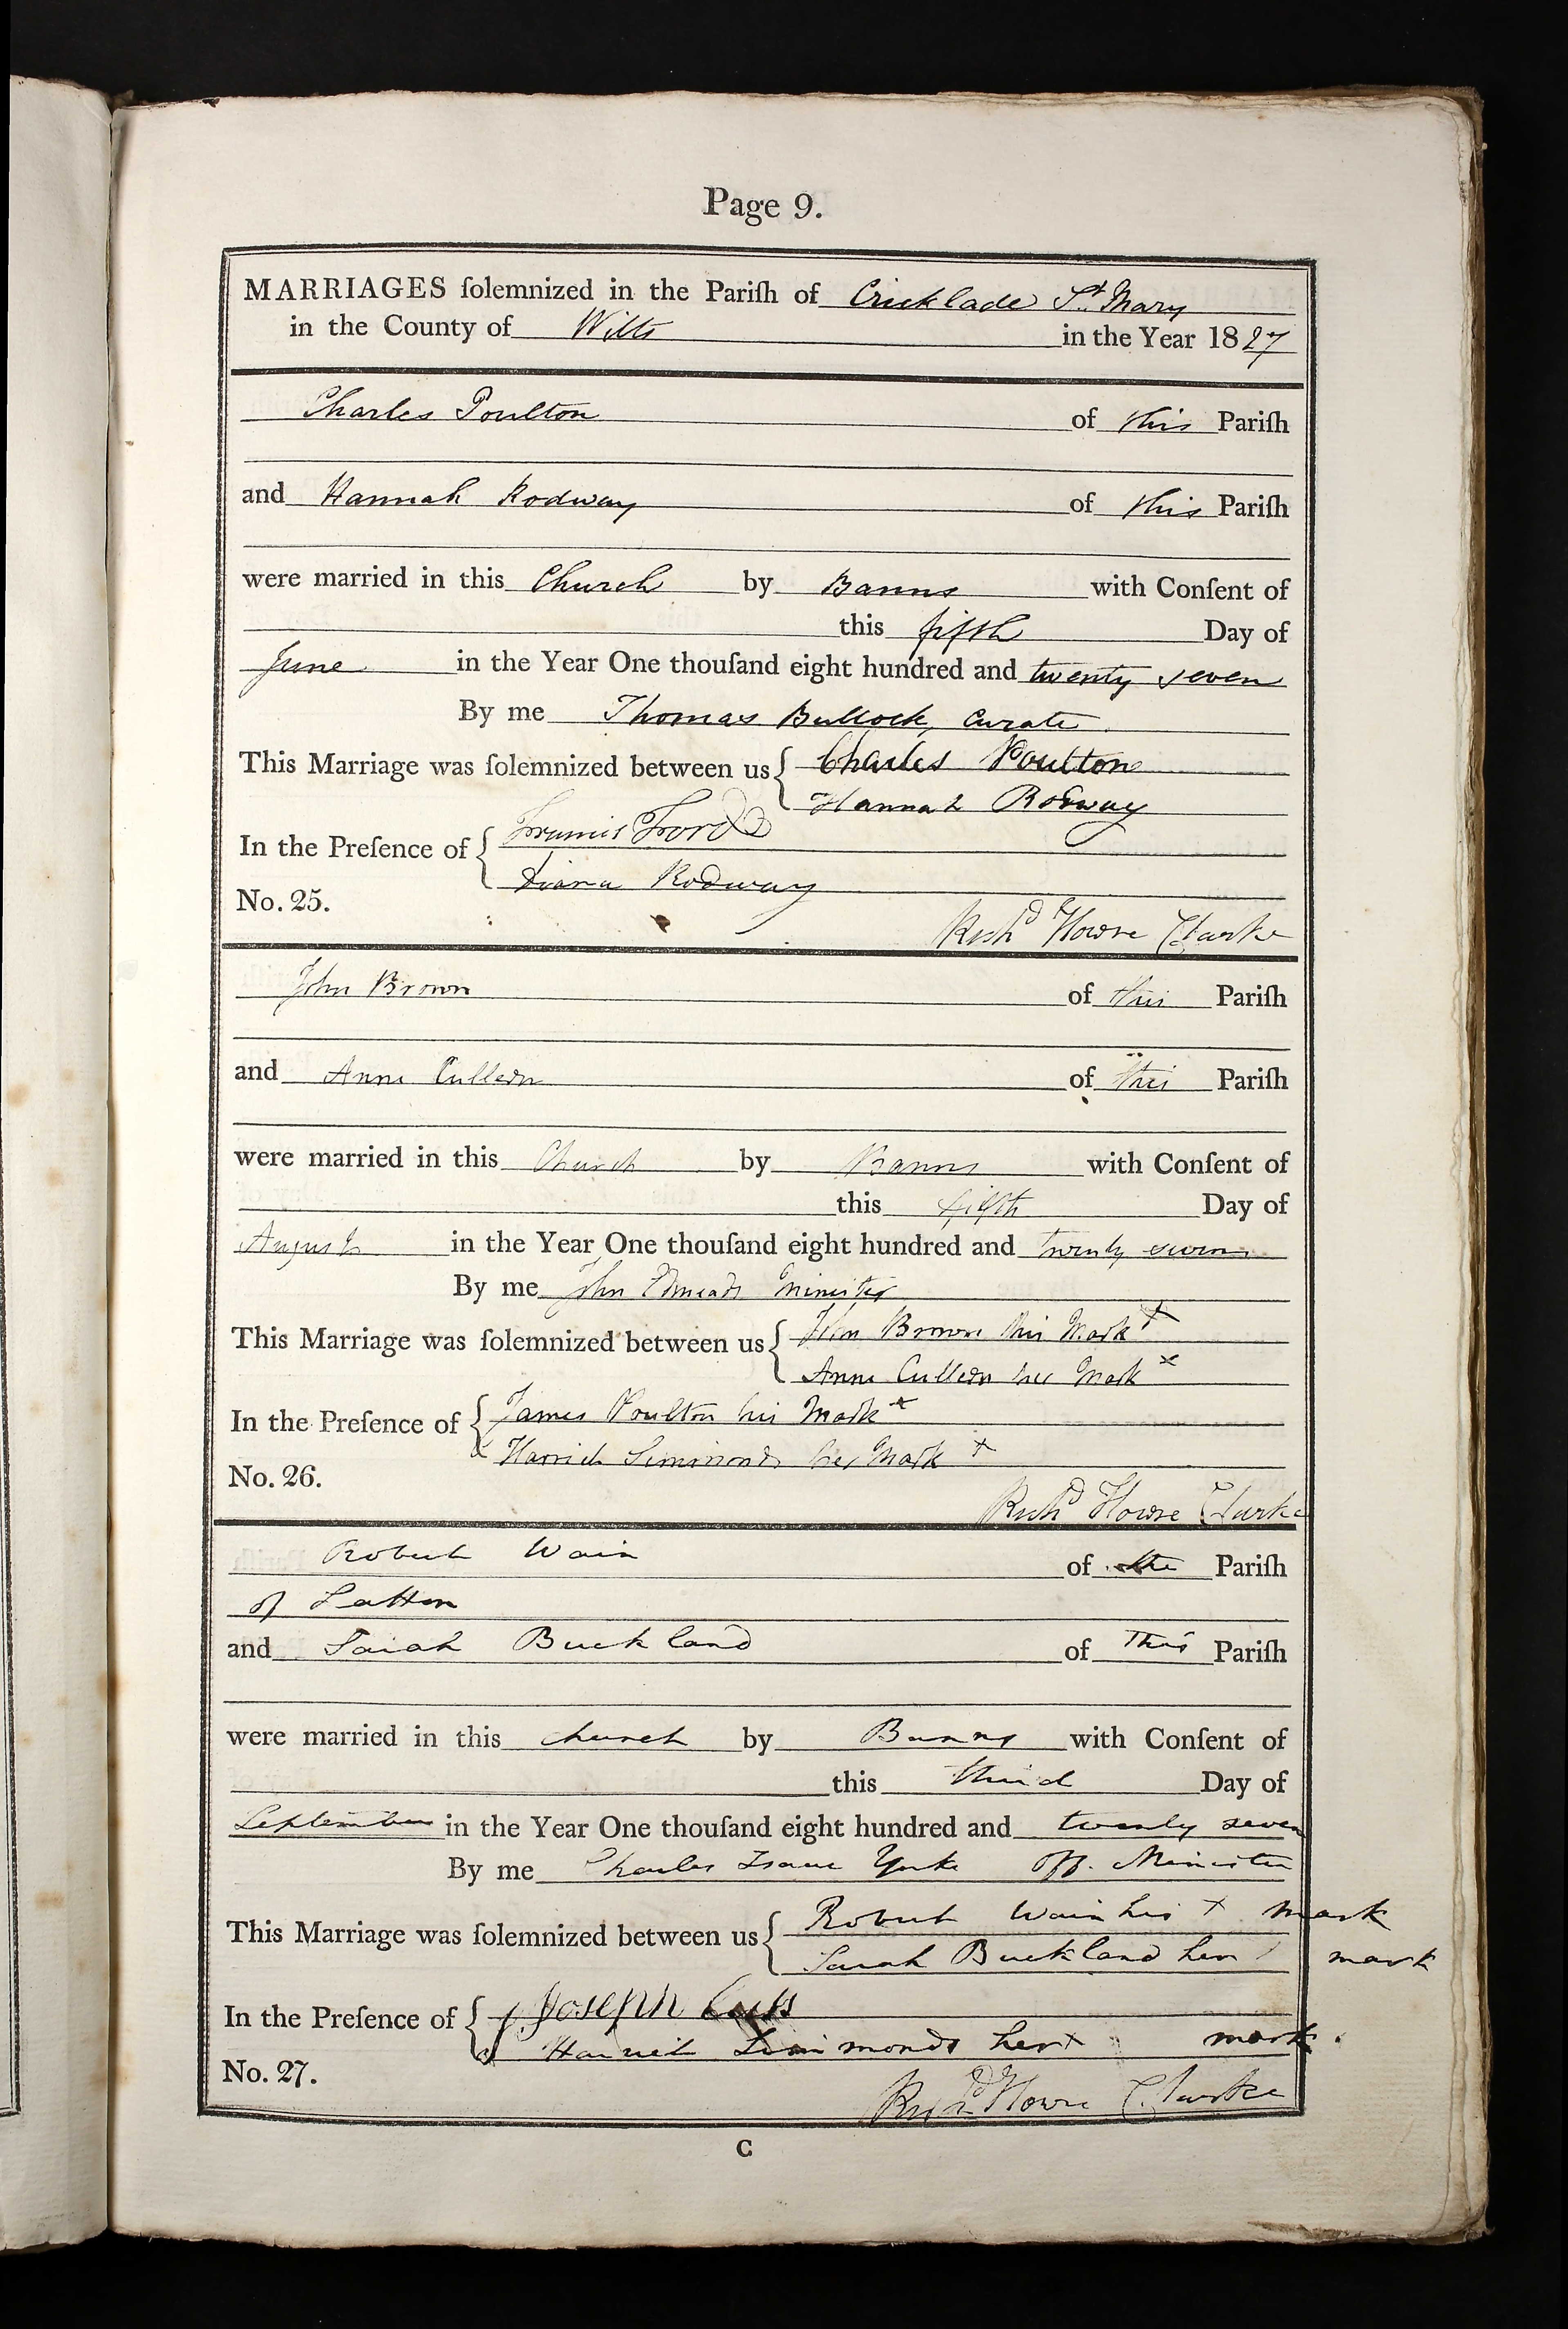 Page 9.
MARRIAGES ſolemnized in the Pariſh of Cricklade St. Mary
in the County of Wilts in the Year 1827
Charles Poulton of this Pariſh
and Hannah Rodway of this Pariſh
were married in this Church by Banns with Conſent of
this fifth Day of
June in the Year One thouſand eight hundred and twenty seven
By me Thomas Bullock, Curate.
This Marriage was ſolemnized between us { Charles Poulton
Hannah Rodway
In the Preſence of { Francis Ford
Diana Rodway
No. 25.
Richd Howse Clarke
John Brown of this Pariſh
and Anne Cullern of this Pariſh
were married in this Church by Banns with Conſent of
this fifth Day of
August in the Year One thouſand eight hundred and twenty seven
By me John Edmeads Minister
This Marriage was ſolemnized between us { John Brown his Mark +
Anne Cullern her Mark x
In the Preſence of { James Poulton his Mark +
Harriet Simmonds her Mark +
No. 26.
Richd Howse Clarke
Robert Wain of the Pariſh
of Latton
and Sarah Buckland of this Pariſh
were married in this church by Banns with Conſent of
this third Day of
September in the Year One thouſand eight hundred and twenty seven
By me Charles Isaac Yorke Off. Minister
This Marriage was ſolemnized between us { Robert Wain his + mark
Sarah Buckland her mark
In the Preſence of { Joseph Cuss
Harriet Simmonds her + mark.
No. 27.
Richd Howse Clarke
C